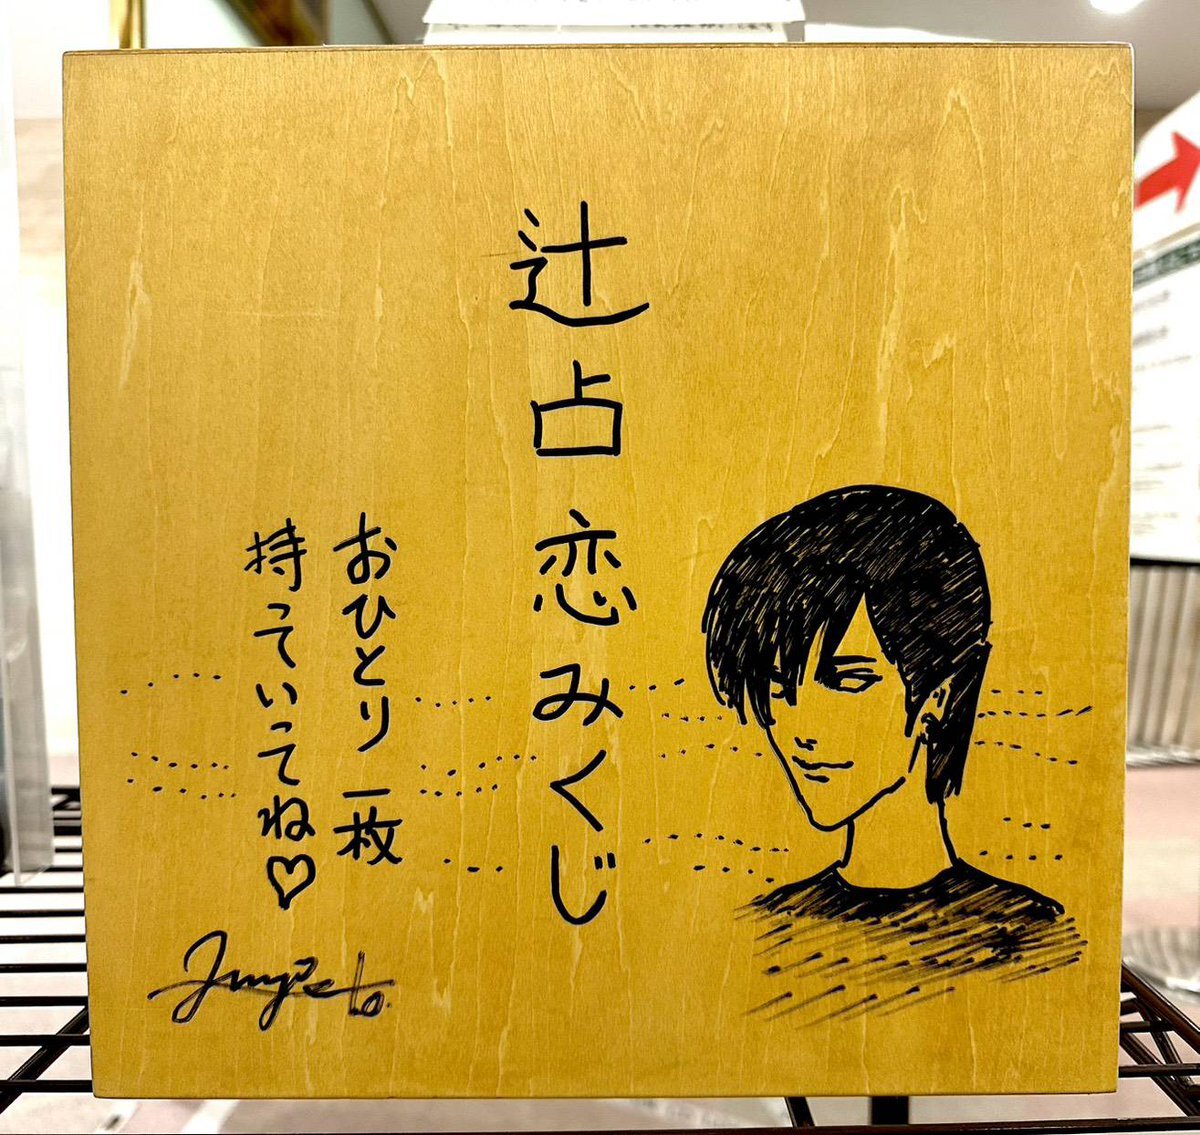 辻占恋みくじ
おひとり一枚
持っていってね♡